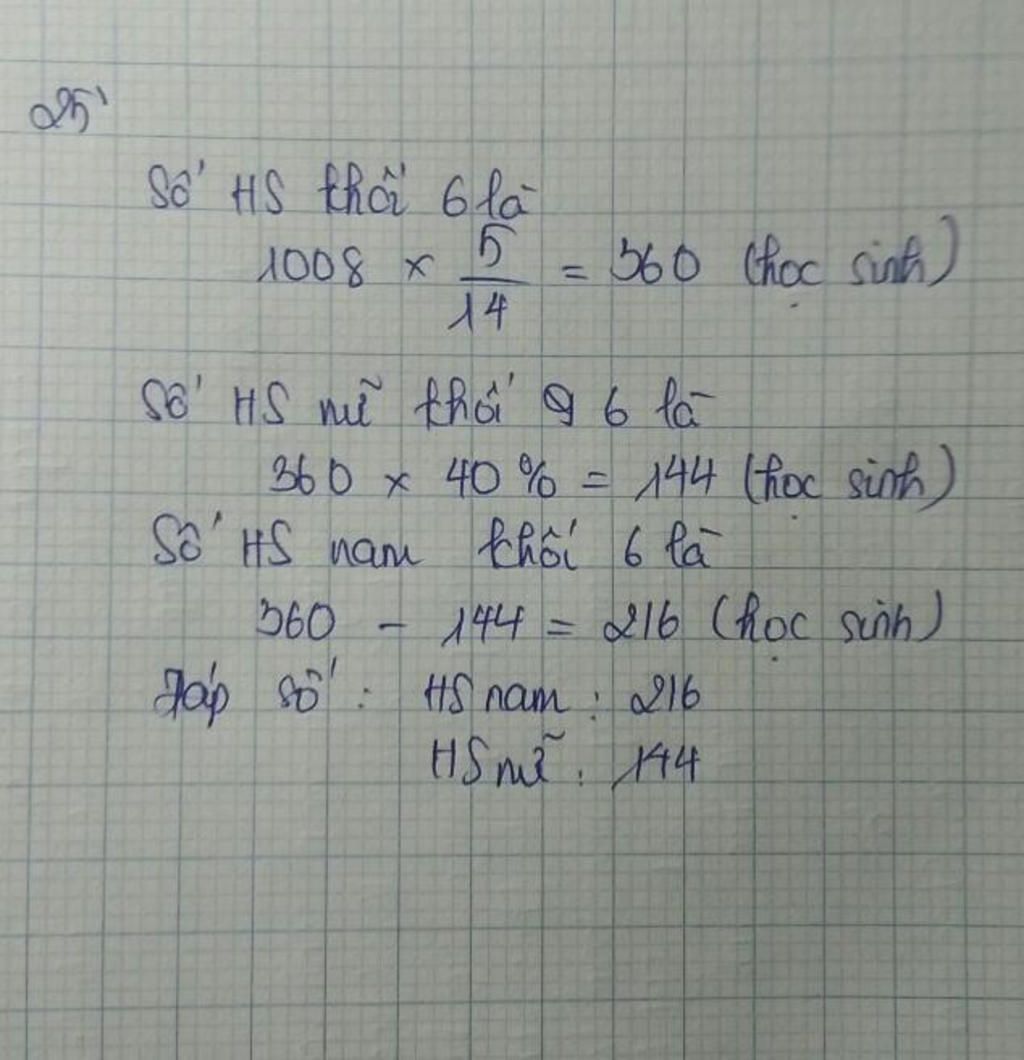 25'
Số HS khối 6 là
1008 × 5/14 = 360 (học sinh)
Số HS nữ khối 6 là
360 × 40% = 144 (học sinh)
Số HS nam khối 6 là
360 - 144 = 216 (học sinh)
Đáp số : HS nam : 216
HS nữ : 144